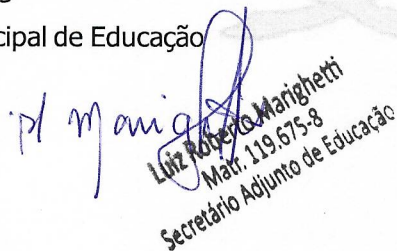 cipal de Educação
p/ Marig
Luiz Roberto Marighetti
Matr. 119.675-8
Secretário Adjunto de Educação